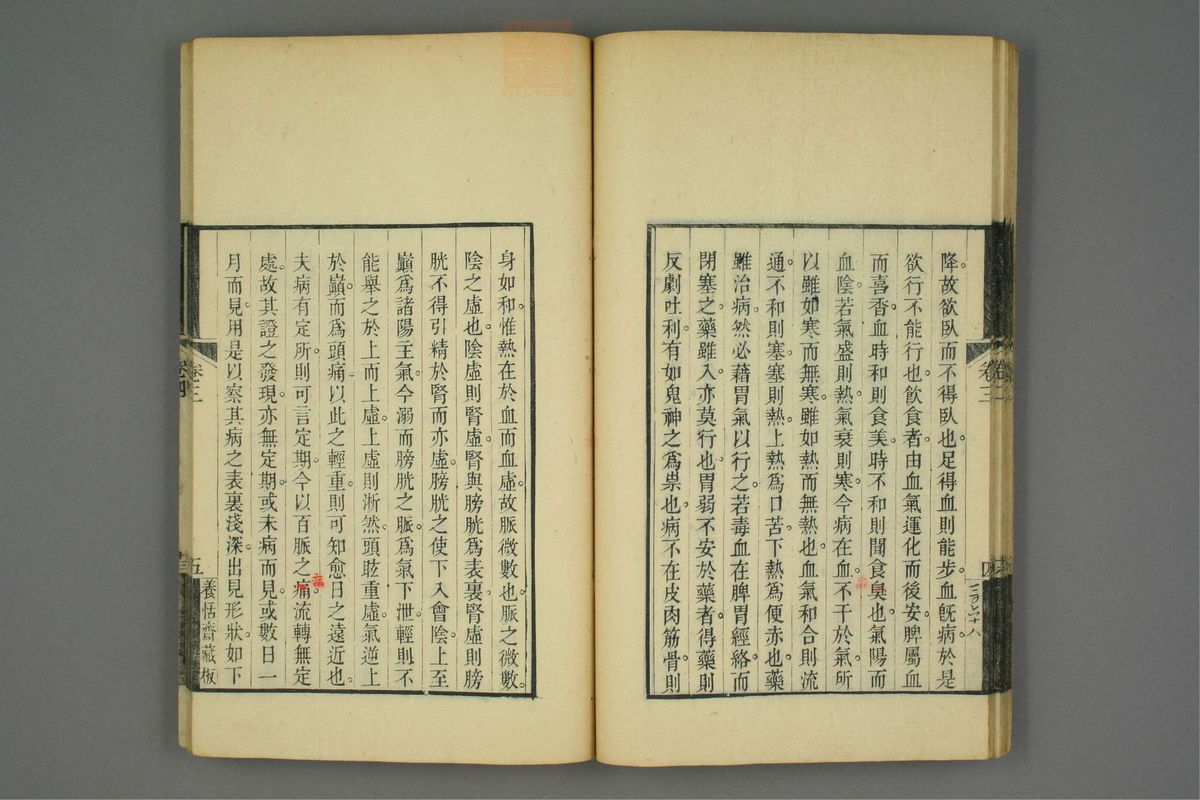 降。故欲臥而不得臥也。足得血則能步。血旣病。於是
欲行不能行也。飲食者。由血氣運化而後安。脾屬血
而喜香。血時和則食美。時不和則聞食臭也。氣陽而
血陰。若氣盛則熱。氣衰則寒。今病在血。不干於氣。所
以雖如寒而無寒。雖如熱而無熱也。血氣和合則流
通。不和則塞。塞則熱。上熱爲口苦。下熱爲便赤也。藥
雖治病。然必藉胃氣以行之。若毒血在脾胃經絡。而
閉塞之。藥雖入。亦莫行也。胃弱不安於藥者。得藥則
反劇吐利。有如鬼神之爲祟也。病不在皮肉筋骨。則
身如和。惟熱在於血而血虛。故脈微數也。脈之微數。
陰之虛也。陰虛則腎虛。腎與膀胱爲表裏。腎虛則膀
胱不得引精於腎而亦虛。膀胱之使。下入會陰。上至
巔。爲諸陽主氣。今溺而膀胱之脈。爲氣下泄。輕則不
能舉之於上而上虛。上虛則淅然頭眩。重虛。氣逆上
於巔。而爲頭痛。以此之輕重。則可知愈日之遠近也。
夫病有定所。則可言定期。今以百脈之痛。流轉無定
處。故其證之發現。亦無定期。或未病而見。或數日一
月而見。用是以察其病之表裏淺深。出見形狀。如下
卷三
四
卷三
五
養恬齋藏板
卷四